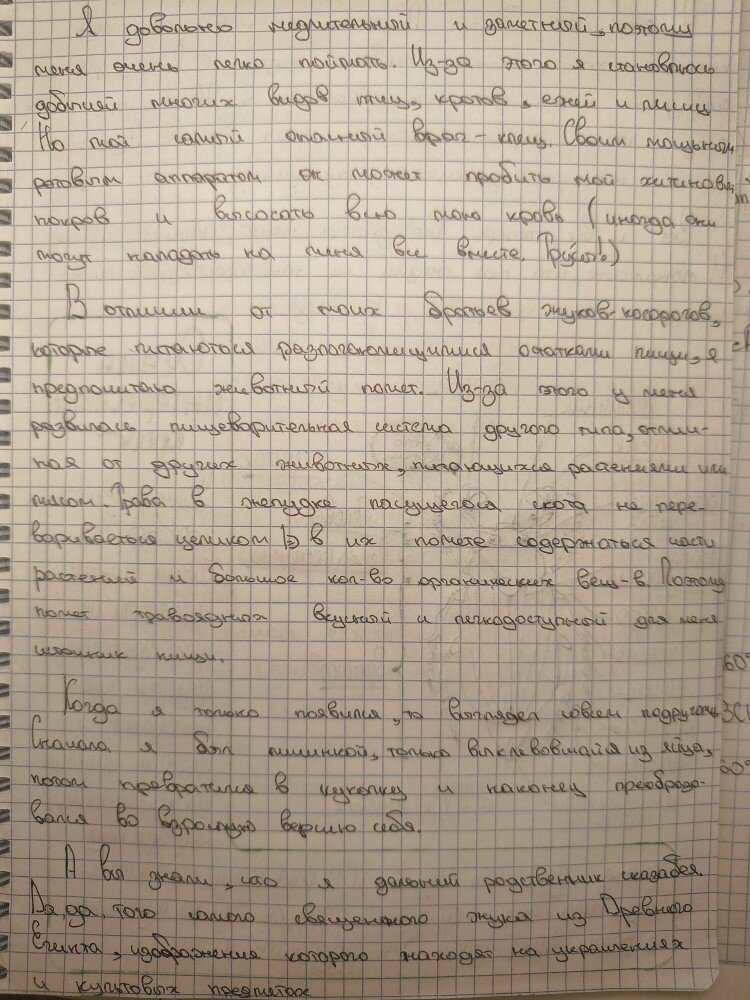 Я довольно медлительный и заметный, поэтому
меня очень легко поймать. Из-за этого я становлюсь
добычей многих видов птиц, кротов, ежей и лисиц
Но мой самый опасный враг - клещ. Своим мощным
ротовым аппаратом он может пробить мой хитиновый
покров и высосать всю мою кровь (иногда они
могут нападать на меня все вместе. Грусть)
В отличии от моих братьев жуков-носорогов,
которые питаються разлогающимися остатками пищи, я
предпочитаю животный помет. Из-за этого у меня
развилась пищеварительная система другого типа, отлич-
ная от других животных, питающихся растениями или
мясом. Трава в желудке пасущегося скота не пере-
варивается целиком и в их помете содержаться части
растений и большое кол-во органических вещ-в. Поэтому
помет травоядных вкусный и легкодоступный для меня
источник пищи.
Когда я только появился, то выглядел совсем подругому
Сначала я был личинкой, только вылклевовшайся из яйца,
потом превратился в куколку и наконец преобразо-
вался во взрослую версию себя.
А вы знали, что я дальний родственник скарабея.
Да, да, того самого священого жука из Древнего
Египта, изображения которого находят на украшениях
и культовых предметах
60°
30°